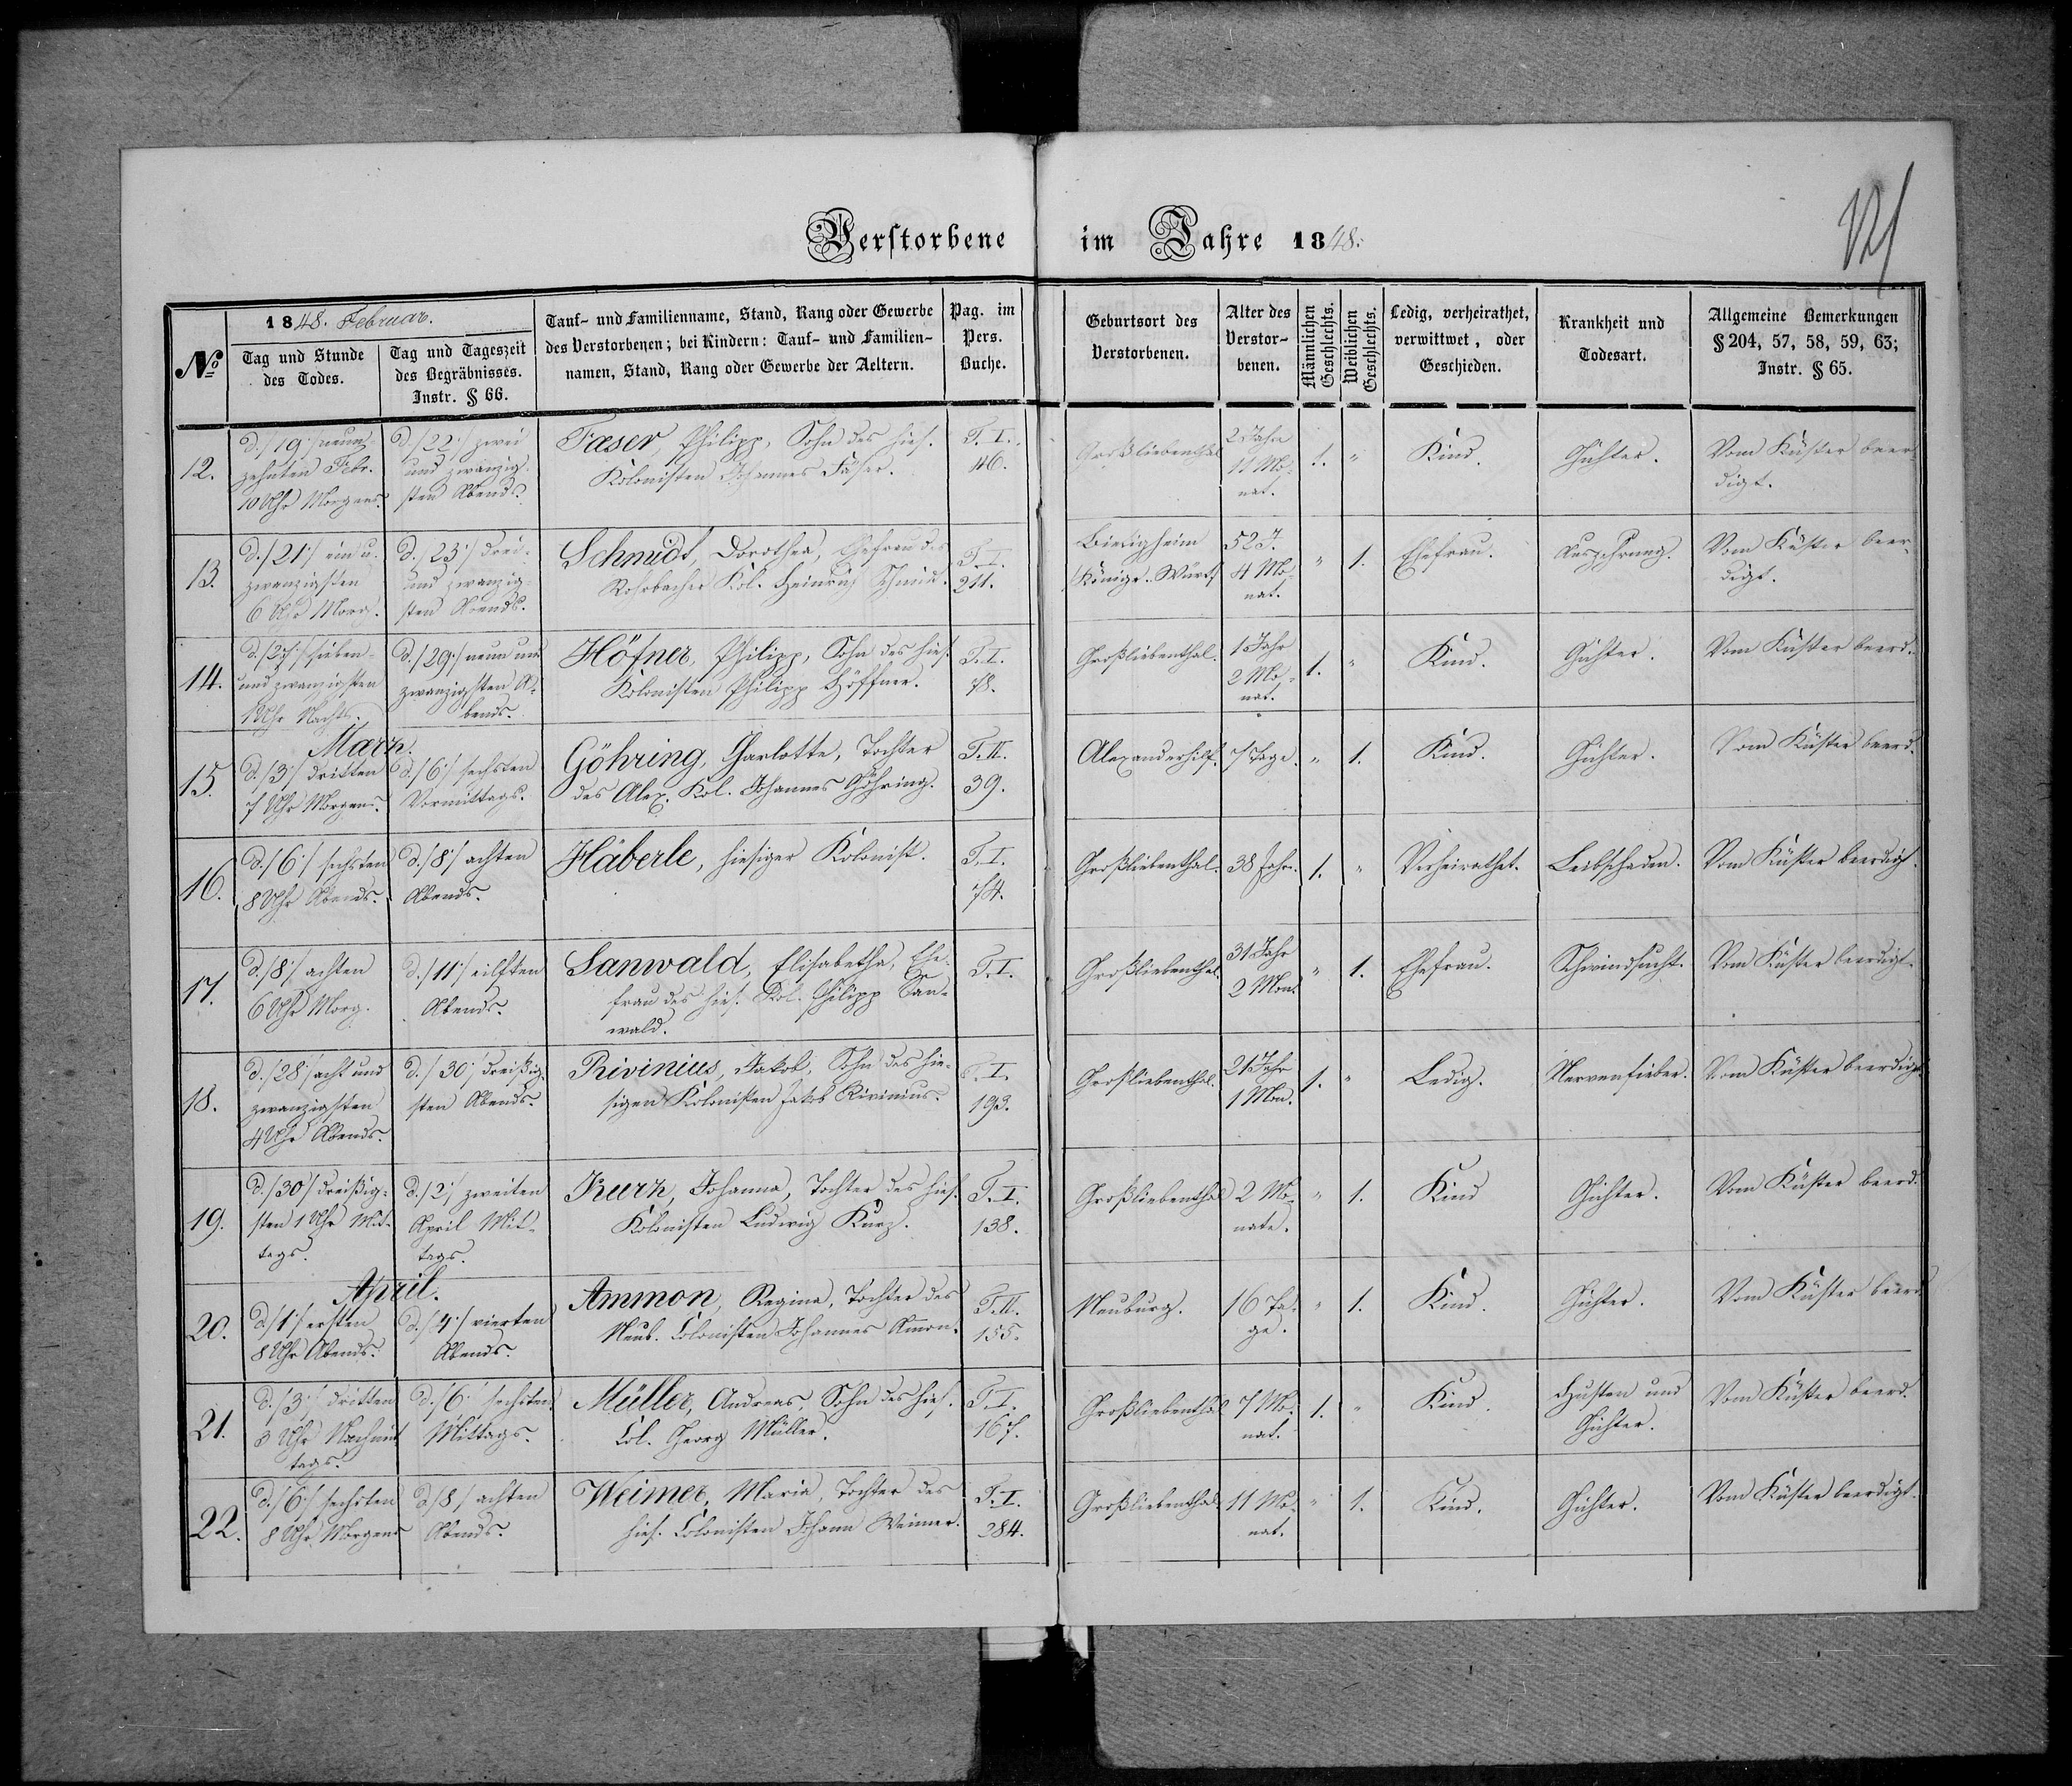 Verstorbene im Jahre 1848.
№
1848. Februar.
Tag und Stunde des Todes.
Tag und Tageszeit des Begräbnisses. Instr. § 66.
Tauf- und Familienname, Stand, Rang oder Gewerbe
des Verstorbenen; bei Kindern: Tauf- und Familien-
namen, Stand, Rang oder Gewerbe der Aeltern.
Pag. im Pers. Buche.
Geburtsort des Verstorbenen.
Alter des Verstor- benen.
Männlichen Geschlechts.
Weiblichen Geschlechts.
Ledig, verheirathet, verwittwet, oder Geschieden.
Krankheit und Todesart.
Allgemeine Bemerkungen
§ 204, 57, 58, 59, 63;
Instr. § 65.
12.
d./19/ neun-
zehnten Febr.
10 Uhr Morgens.
d./22/ zwei
und zwanzig-
sten Abends.
Faeser, Philipp, Sohn des hies.
Kolonisten Johannes Fäser.
T. I.
46.
Großliebenthal
2 Jahre
11 Mo-
nat.
1. "
Kind.
Gichter.
Vom Küster beer
digt.
13.
d./21/ ein u.
zwanzigsten
6 Uhr Morg.
d./23/ drei-
und zwanzig-
sten Abends.
Schmidt, Dorothea, Ehefrau des
Rohrbacher Kol. Heinrich Schmidt.
T. I.
211.
Bietigheim
/Königr. Würt/
52 J.
4 Mo-
nat.
" 1.
Ehefrau.
Auszehrung.
Vom Küster beer-
digt.
14.
d./27/ sieben-
und zwanzigsten
1 Uhr Nachts.
d./29/ neun und
zwanzigsten A-
bends.
Höfner, Philipp, Sohn des hies.
Kolonisten Philipp Höffner.
T. I.
78.
Großliebenthal.
1 Jahr
2 Mo-
nat.
1. "
Kind.
Gichter.
Vom Küster beerd.
März.
15.
d./3/ dritten
7 Uhr Morgens.
d./6/ sechsten
Vormittags.
Göhring, Charlotte, Tochter
des Alex. Kol. Johannes Göhring.
T. II.
39.
Alexanderhilf.
7 Tage.
" 1.
Kind.
Gichter.
Vom Küster beerd.
16.
d./6/ sechsten
8 Uhr Abends.
d./8/ achten
Abends.
Häberle, hiesiger Kolonist.
T. I.
74.
Großliebenthal.
38 Jahr.
1. "
Verheirathet.
Leibschaden.
Vom Küster beerdigt.
17.
d./8/ achten
6 Uhr Morg.
d./11/ eilften
Abends.
Sanwald, Elisabetha, Ehe-
frau des hies. Kol. Philipp San-
wald.
T. I.
Großliebenthal.
31 Jahr
2 Mon.
" 1.
Ehefrau.
Schwindsucht.
Vom Küster beerdigt.
18.
d./28/ acht und
zwanzigsten
4 Uhr Abends.
d./30/ dreißig-
sten Abends.
Rivinius, Jakob, Sohn des hie-
sigen Kolonisten Jakob Rivinius.
T. I.
193.
Großliebenthal.
21 Jahr
1 Mon.
1. "
Ledig.
Nervenfieber.
Vom Küster beerdigt.
19.
d./30/ dreißig-
sten 1 Uhr Mit-
tags.
d./2/ zweiten
April Mit-
tags.
Kurz, Johanna, Tochter des hies.
Kolonisten Ludwig Kurz.
T. I.
138.
Großliebenthal
2 Mo-
nate.
" 1.
Kind
Gichter.
Vom Küster beerd.
April.
20.
d./1/ ersten
8 Uhr Abends.
d./4/ vierten
Abends.
Ammon, Regina, Tochter des
Neub. Colonisten Johannes Am̄on.
T. II.
155.
Neuburg.
16 Ta-
ge.
" 1.
Kind.
Gichter.
Vom Küster beerd.
21.
d./3/ dritten
3 Uhr Nachmit
tags.
d./6/ sechsten
Mittags.
Müller, Andreas, Sohn des hies.
Col. Georg Müller.
T. I.
167.
Großliebenthal
7 Mo-
nat.
1. "
Kind.
Husten und
Gichter.
Vom Küster beerd.
22.
d./6/ sechsten
8 Uhr Morgens
d./8/ achten
Abends.
Weimer, Maria, Tochter des
hies. Colonisten Johann Weimer.
T. I.
284.
Großliebenthal
11 Mo-
nat.
" 1.
Kind.
Gichter.
Vom Küster beerdigt.